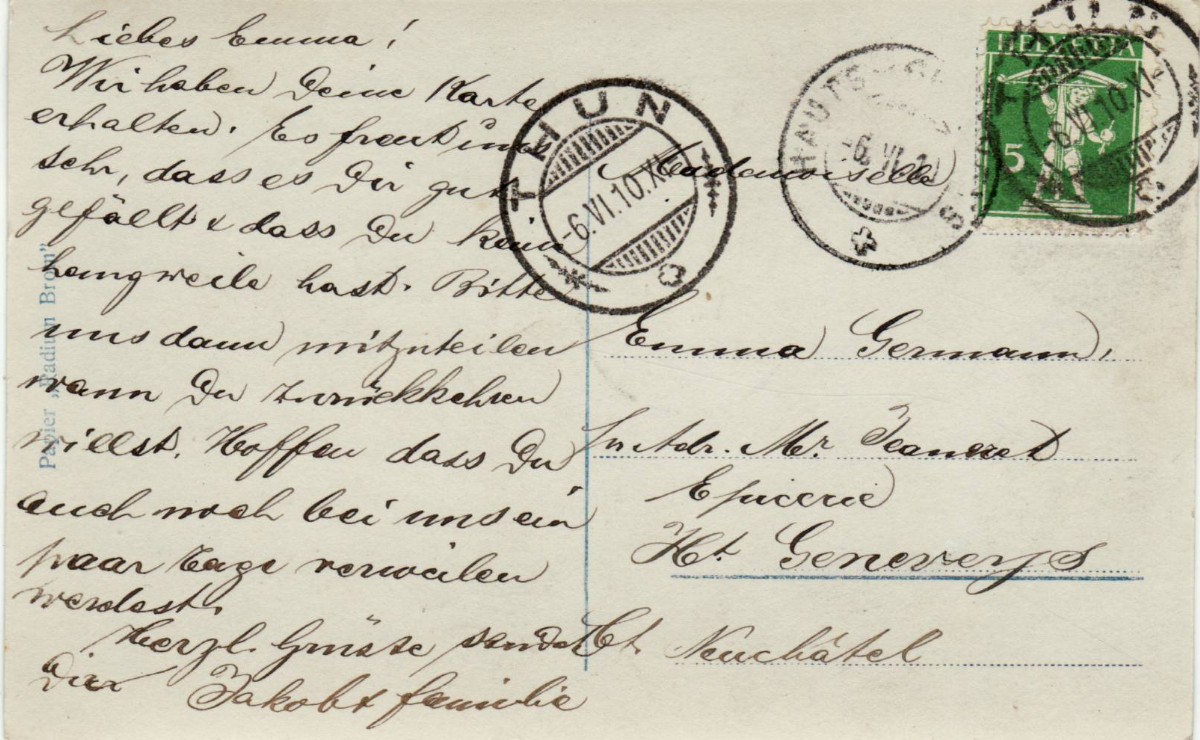 Liebes Emma!
Wir haben Deine Karte
erhalten. Es freut uns
sehr, dass es Dir gut
gefällt & dass Du kein
Langweile hast. Bitte
uns dann mitzuteilen
wann Du zurückkehren
willst. Hoffen dass Du
auch noch bei uns ein
paar Tage verweilen
werdest.
Herzl. Grüsse sendet
Dir Jakob & familie
Papier „Radium Brom"
THUN
-6.VI.10.XI
HAUTS
-6.VI.1
HELVETIA
5
6.VI.10.XI
Mademoiselle
Emma Germann,
Adr. Mr. Jeanneret
Epicerie
Ht. Geneveys
Ct. Neuchâtel